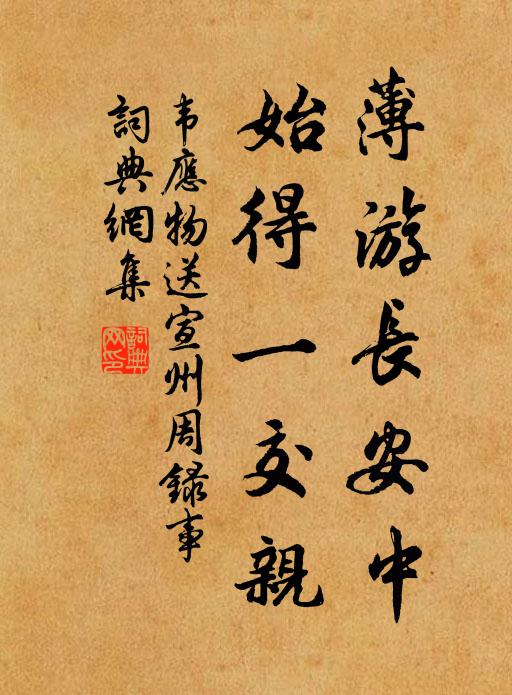 薄游長安中
始得一交親
韦應物送宣州周錄事
詞典網集
詞典
网印